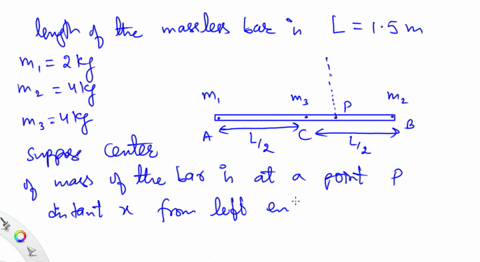 length of the massless bar is L = 1.5 m
m₁ = 2 kg
m₂ = 4 kg
m₃ = 4 kg
m₁ m₃ P m₂
A C B
L/2 L/2
Suppose center
of mass of the bar is at a point P
distant x from left en